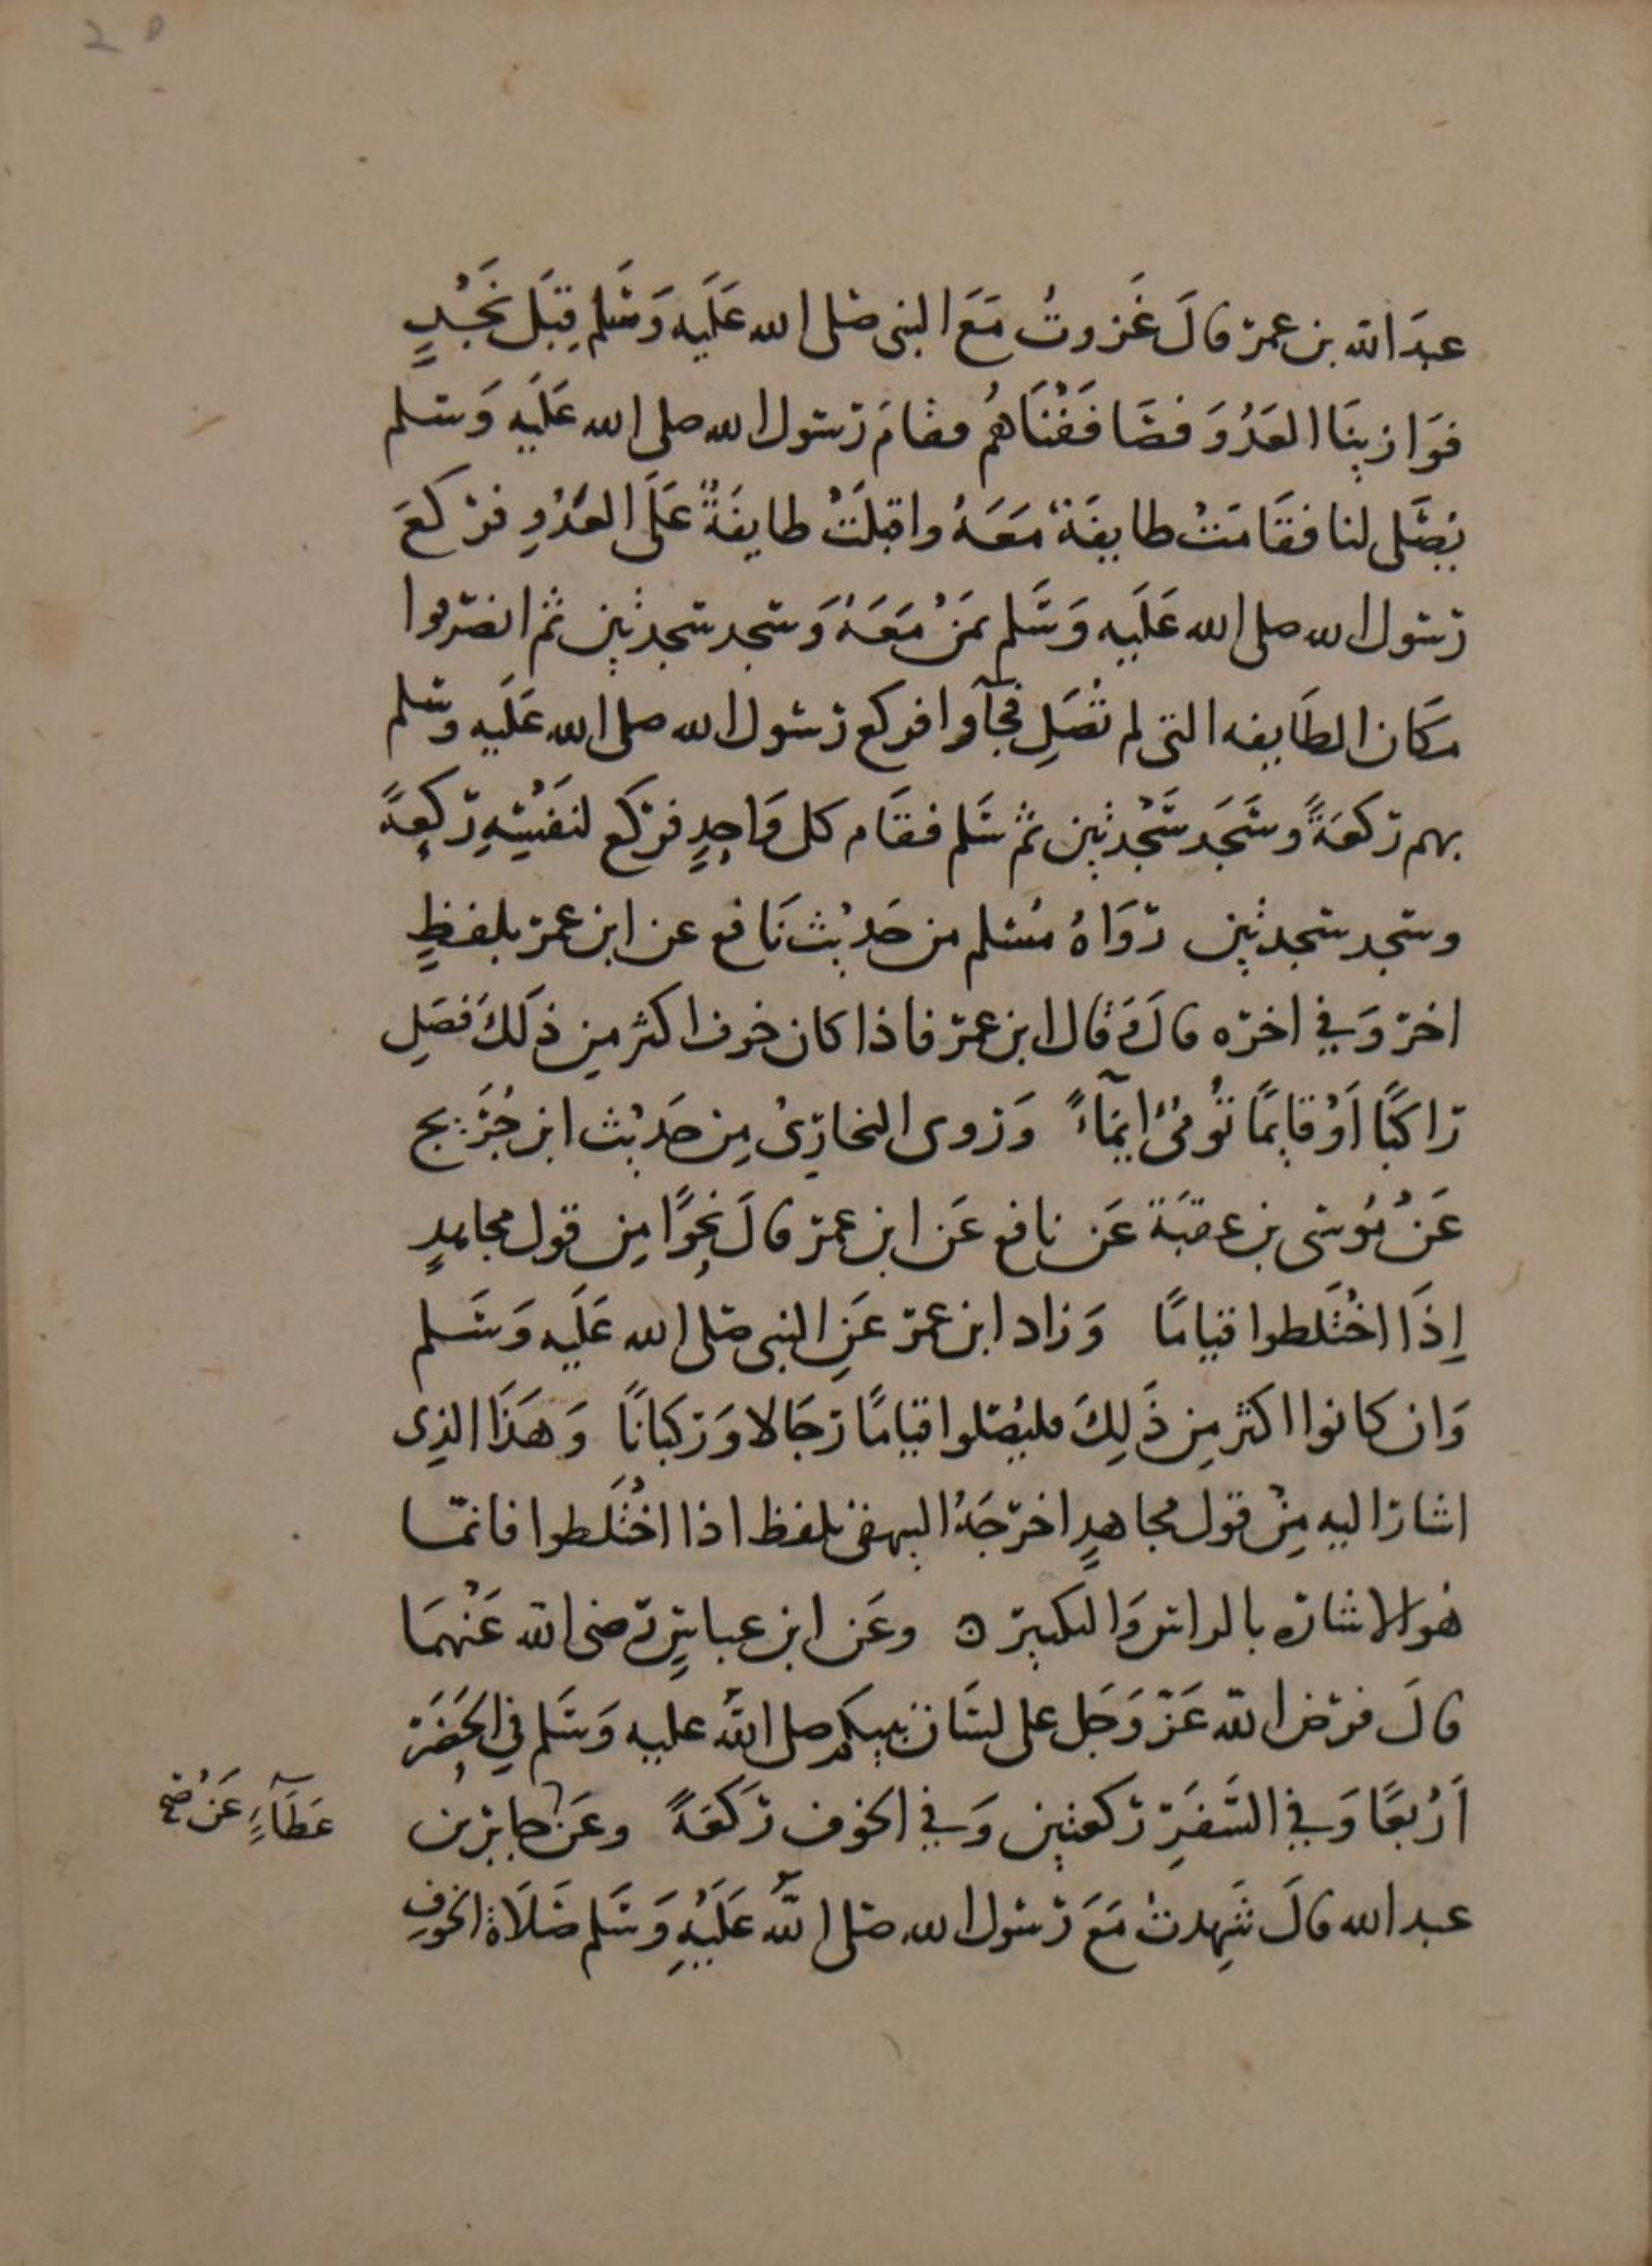 عبدَ الله بن عمر قالَ غَزوتُ مَعَ النبي صلى الله عَلَيه وَسَلم قِبَل نَجْدٍ
فوَازينَا العَدُوَ فصَافَفْنَاهُم فقامَ رَسول الله صلى الله عَلَيه وَسلم
يُصَلى لنا فقَامَتْ طايفَةٌ مَعَهُ واقبلَتْ طايِفَةٌ عَلَى العَدُوِ فركعَ
رَسول الله صلى الله عَلَيه وَسَلم بمَنْ مَعَهُ وَسجد سجدتين ثم انصَرفوا
مَكان الطَايفه التى لم تُصَلِ فجآوا فركع رَسُول الله صلى الله عَلَيه وسَلم
بهم ركعَةً وسَجَد سَجْدتين ثم سَلم فقَام كل وَاحِدٍ فركع لنفَسْهِ رَكعَةً
وسجد سجدتين رَوَاهُ مُسْلم من حَديْث نَافع عن ابن عمر بلفظٍ
اخر وَفي اخره قالَ وَقال ابن عمر فاذا كان خوف اكثر مِن ذَلكَ فَصَلِ
رَاكبًا اَوْ قايمًا تُومئُ ايمآءً وَروى البخارِىُ مِن حَديْث ابن جُرَيج
عَنْ مُوسَى بن عقبَة عَن نافع عَن ابن عمر قالَ نحْوًا مِن قول مجاهدٍ
اِذَا اخْتَلطوا قيامًا وَزاد ابن عمر عَنِ النبي صَلى الله عَلَيه وَسَلم
وَان كانوا اكثر مِن ذَلِكَ فليُصَلوا قيامًا رَجَالا وَركبانًا وَهَذَا الذِى
اشارَ اليه مِنْ قول مجاهدٍ اخرَجَهُ البيهقي بلفظ اذا اخْتَلَطوا فانما
هُوَ الاشارَه بالراس وَالتكبير ه وعَن ابن عباسٍ رَضى الله عَنْهمَا
قالَ فرض الله عَزَّ وَجَل على لسَان نبيكم صلى اللهُ عليه وَسَلم في الحَضَر
اَرْبعًا وَفي السَّفَرِ رَكعتين وَفي الخوف رَكعَةً وعَن جابر بن
عَطَآءٍ عَنْ صح
عبد الله قالَ شَهِدتُ مَعَ رَسُول الله صَلى اللهُ عَلَيْهِ وَسَلم صَلَاة الخوفِ